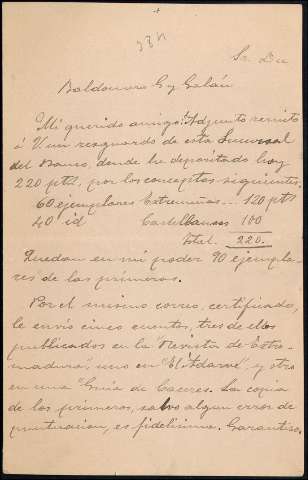 Sr. Dn.
Baldomero G y Galán
Mi querido amigo: Adjunto remito
á V. un resguardo de esta Sucursal
del Banco, donde he depositado hoy
220 pts, por los conceptos siguientes:
60 ejemplares Extremeñas... 120 pts
40 id Castellanas 100
Total. 220.
Quedan en mi poder 90 ejempla-
res de las primeras.
Por el mismo correo, certificado,
le envio cinco cuentos, tres de ellos
publicados en la Revista de Extre-
madura, uno en "El Adarve", y otro
en una "Guia de Cáceres. La copia
de los primeros, salvo algun error de
puntuacion, es fidelisima. Garantizo,